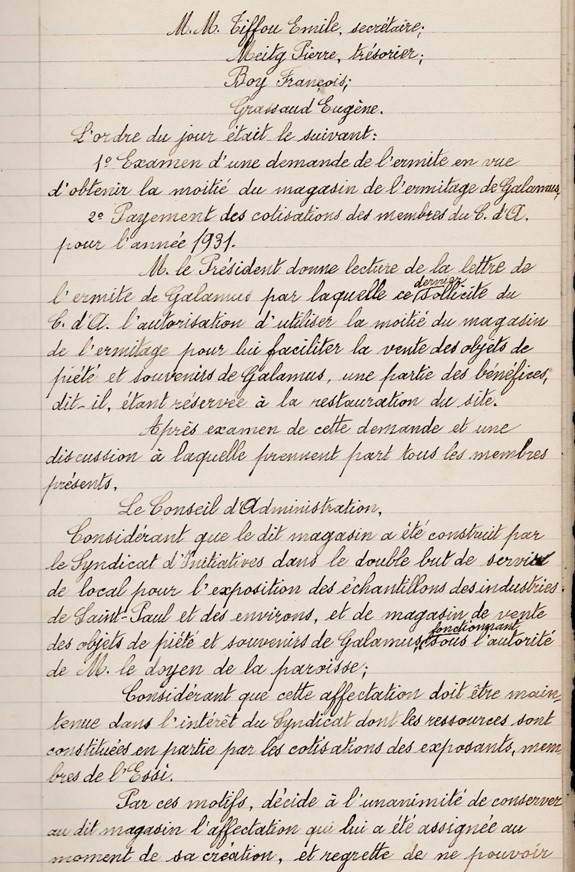 M.M. Tiffou Emile, secrétaire;
Meitg Pierre, trésorier;
Boy François;
Grassaud Eugène.
L'ordre du jour était le suivant:
1º Examen d'une demande de l'ermite en vue
d'obtenir la moitié du magasin de l'ermitage de Galamus,
2º Payement des cotisations des membres du C. d'A.
pour l'année 1931.
M. le Président donne lecture de la lettre de
l'ermite de Galamus par laquelle ce dernier sollicite du
C. d'A. l'autorisation d'utiliser la moitié du magasin
de l'ermitage pour lui faciliter la vente des objets de
piété et souvenirs de Galamus, une partie des bénéfices,
dit-il, étant réservée à la restauration du site.
Après examen de cette demande et une
discussion à laquelle prennent part tous les membres
présents,
Le Conseil d'Administration,
Considérant que le dit magasin a été construit par
le Syndicat d'Initiatives dans le double but de servir
de local pour l'exposition des échantillons des industries
de Saint-Paul et des environs, et de magasin de vente
des objets de piété et souvenirs de Galamus, fonctionnant sous l'autorité
de M. le doyen de la paroisse;
Considérant que cette affectation doit être main-
tenue dans l'intérêt du Syndicat dont les ressources sont
constituées en partie par les cotisations des exposants, mem
bres de l'Essi.
Par ces motifs, décide à l'unanimité de conserver
au dit magasin l'affectation qui lui a été assignée au
moment de sa création, et regrette de ne pouvoir